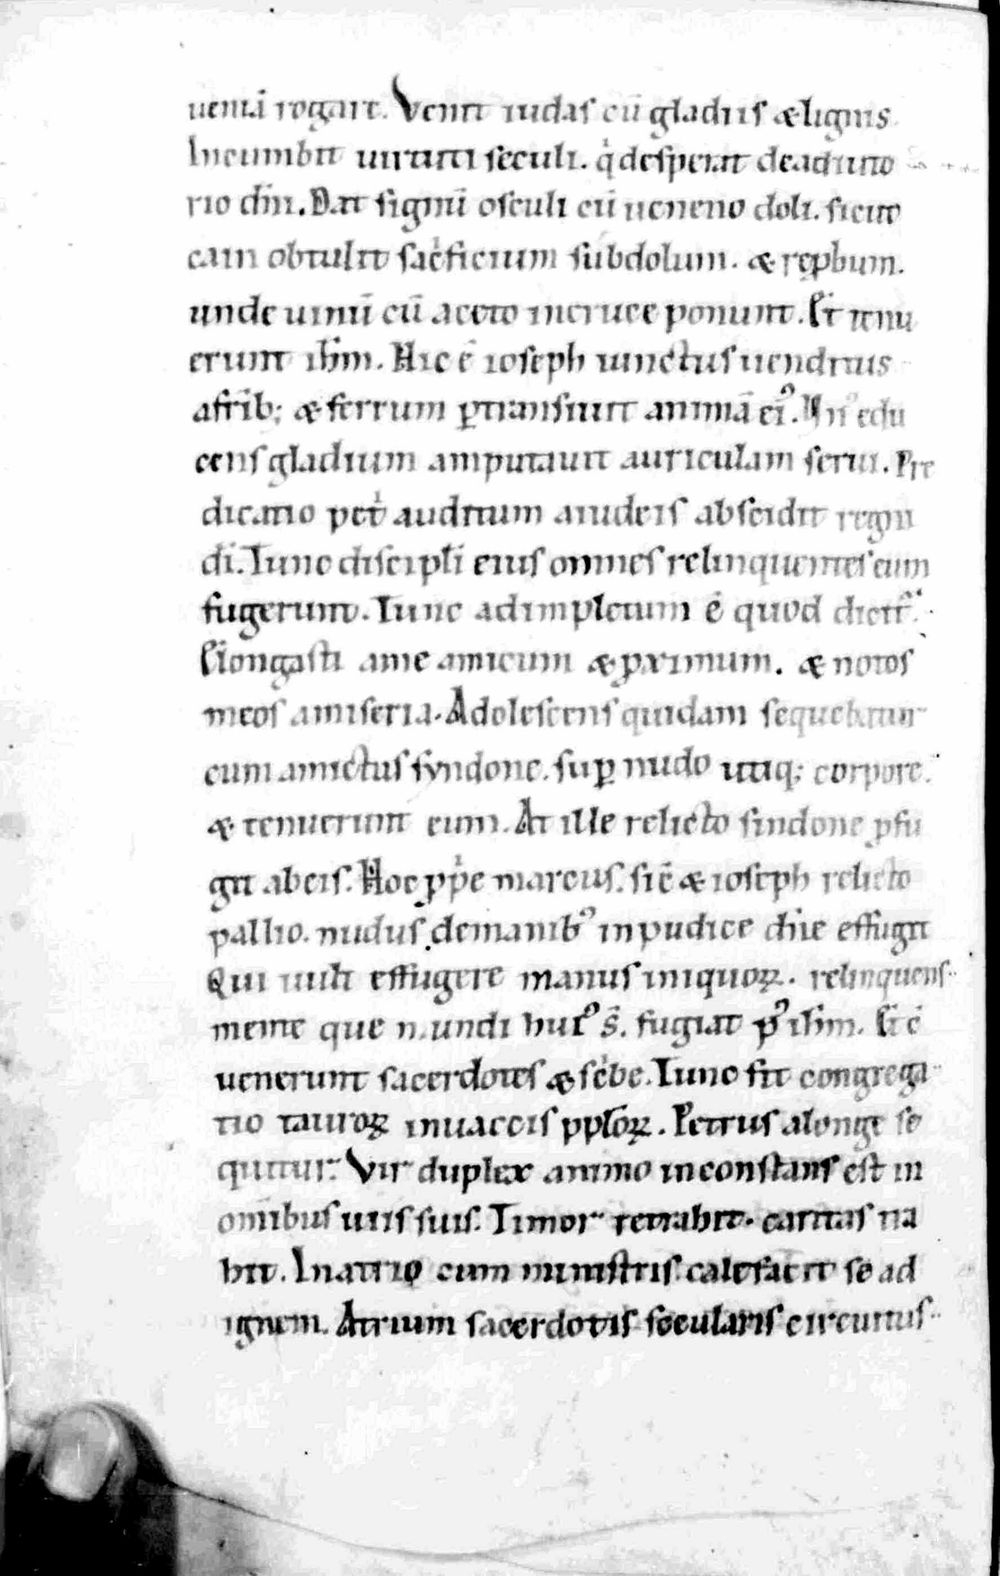 ueniā rogare. Venit iudas cū gladiis & lignis
Incumbit uirtuti seculi. q̇ desperat de adiuto
rio dīni. Dat signū osculi cū ueneno doli. sicut
cain obtulit sac̓ficium subdolum. & rep̱bum.
unde uinū cū aceto incruce ponunt. Et tenu
erunt ihm̄. Hic ē ioseph iunctus uenditus
afrīb; & ferrum ꝑtransiuit animā ei᷒. Vn᷒ edu
cens gladium amputauit auriculam serui. Pre
dicatio pet̓ auditum aiudeis abscidit regni
dī. Tunc discipl̄i eius omnes relinquentes eum
fugerunt. Tunc adimpletum ē quod dicit᷑.
El̄ongasti ame amicum & ꝓximum. & notos
meos amiseria. Adolescens quidam sequebatur
eum amictus syndone. suꝑ nudo utiq; corpore.
& tenuerunt eum. At ille relicto sindone ꝓfu
git abeis. Hoc ꝓp̓e marcus. sic̄ & ioseph relicto
pallio. nudus demanib᷒ inpudice dn̄e effugit
Qui uult effugere manus iniquoꝝ. relinquens
mente que mundi hui᷒ s̄. fugiat p᷒ ihm̄.
uenerunt sacerdotes & sc̓be. Tunc fit congrega
tio tauroꝝ inuaccis ppl̄oꝝ. Petrus alonge se
quitur. Vir duplex animo inconstans est in
omībus uiis suis. Timor retrahit. caritas tra
hit. Inatrio cum ministris calefacit se ad
ignem. Atrium sacerdotis secularis circuitus